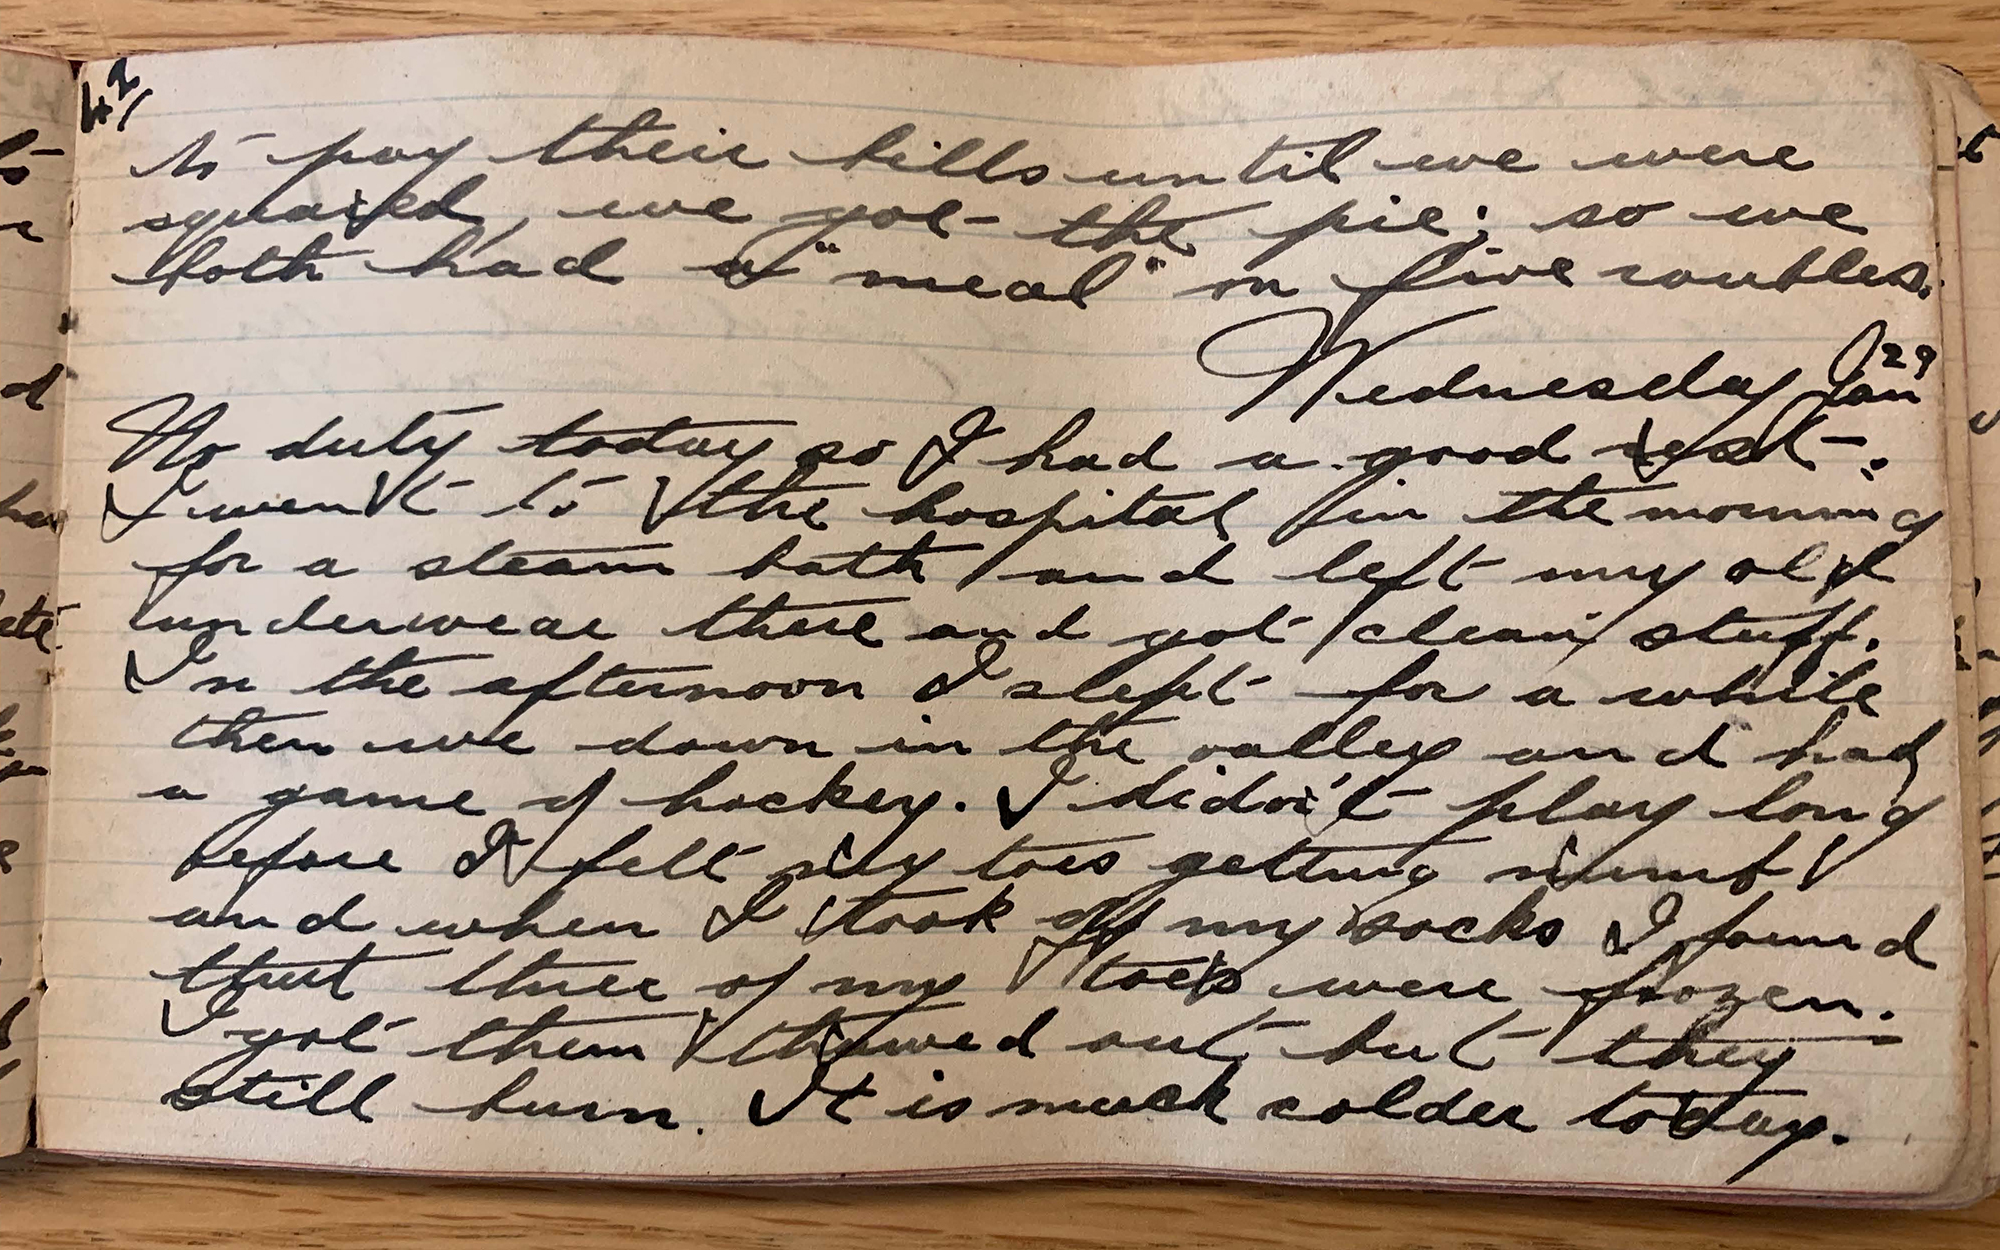 42/
to pay their bills until we were
squared, we got the pie; so we
both had a "meal" on five roubles.
Wednesday Jan 29
No duty today so I had a good rest.
I went to the hospital in the morning
for a steam bath and left my old
underwear there and got clean stuff.
In the afternoon I slept for a while
then we down in the valley and had
a game of hockey. I didn't play long
before I felt my toes getting numb
and when I took off my socks I found
that three of my toes were frozen.
I got them thawed out, but they
still burn. It is much colder today.